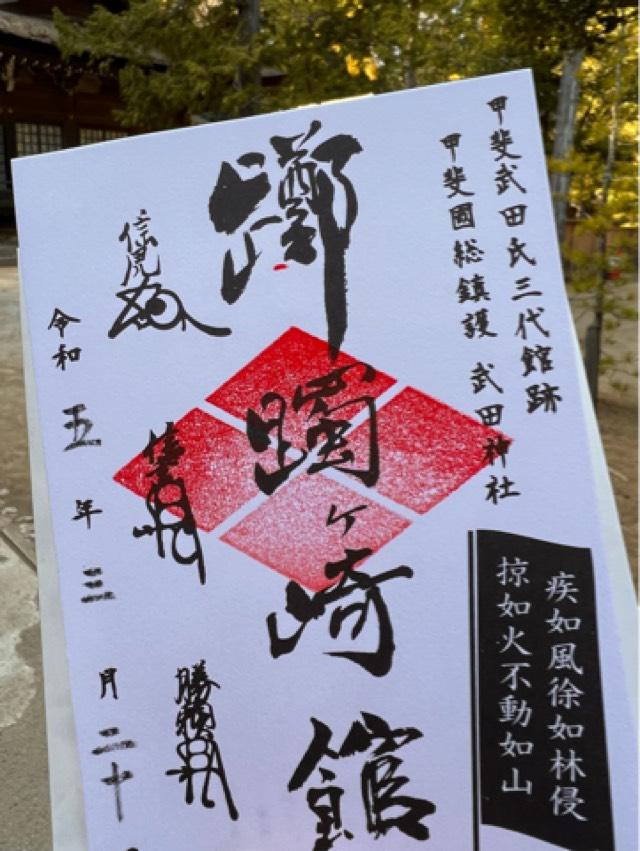 甲斐武田氏三代館跡
甲斐國総鎮護 武田神社
疾如風徐如林侵
掠如火不動如山
躑躅ヶ崎館
信虎
信玄
勝頼
令和五年三月二十